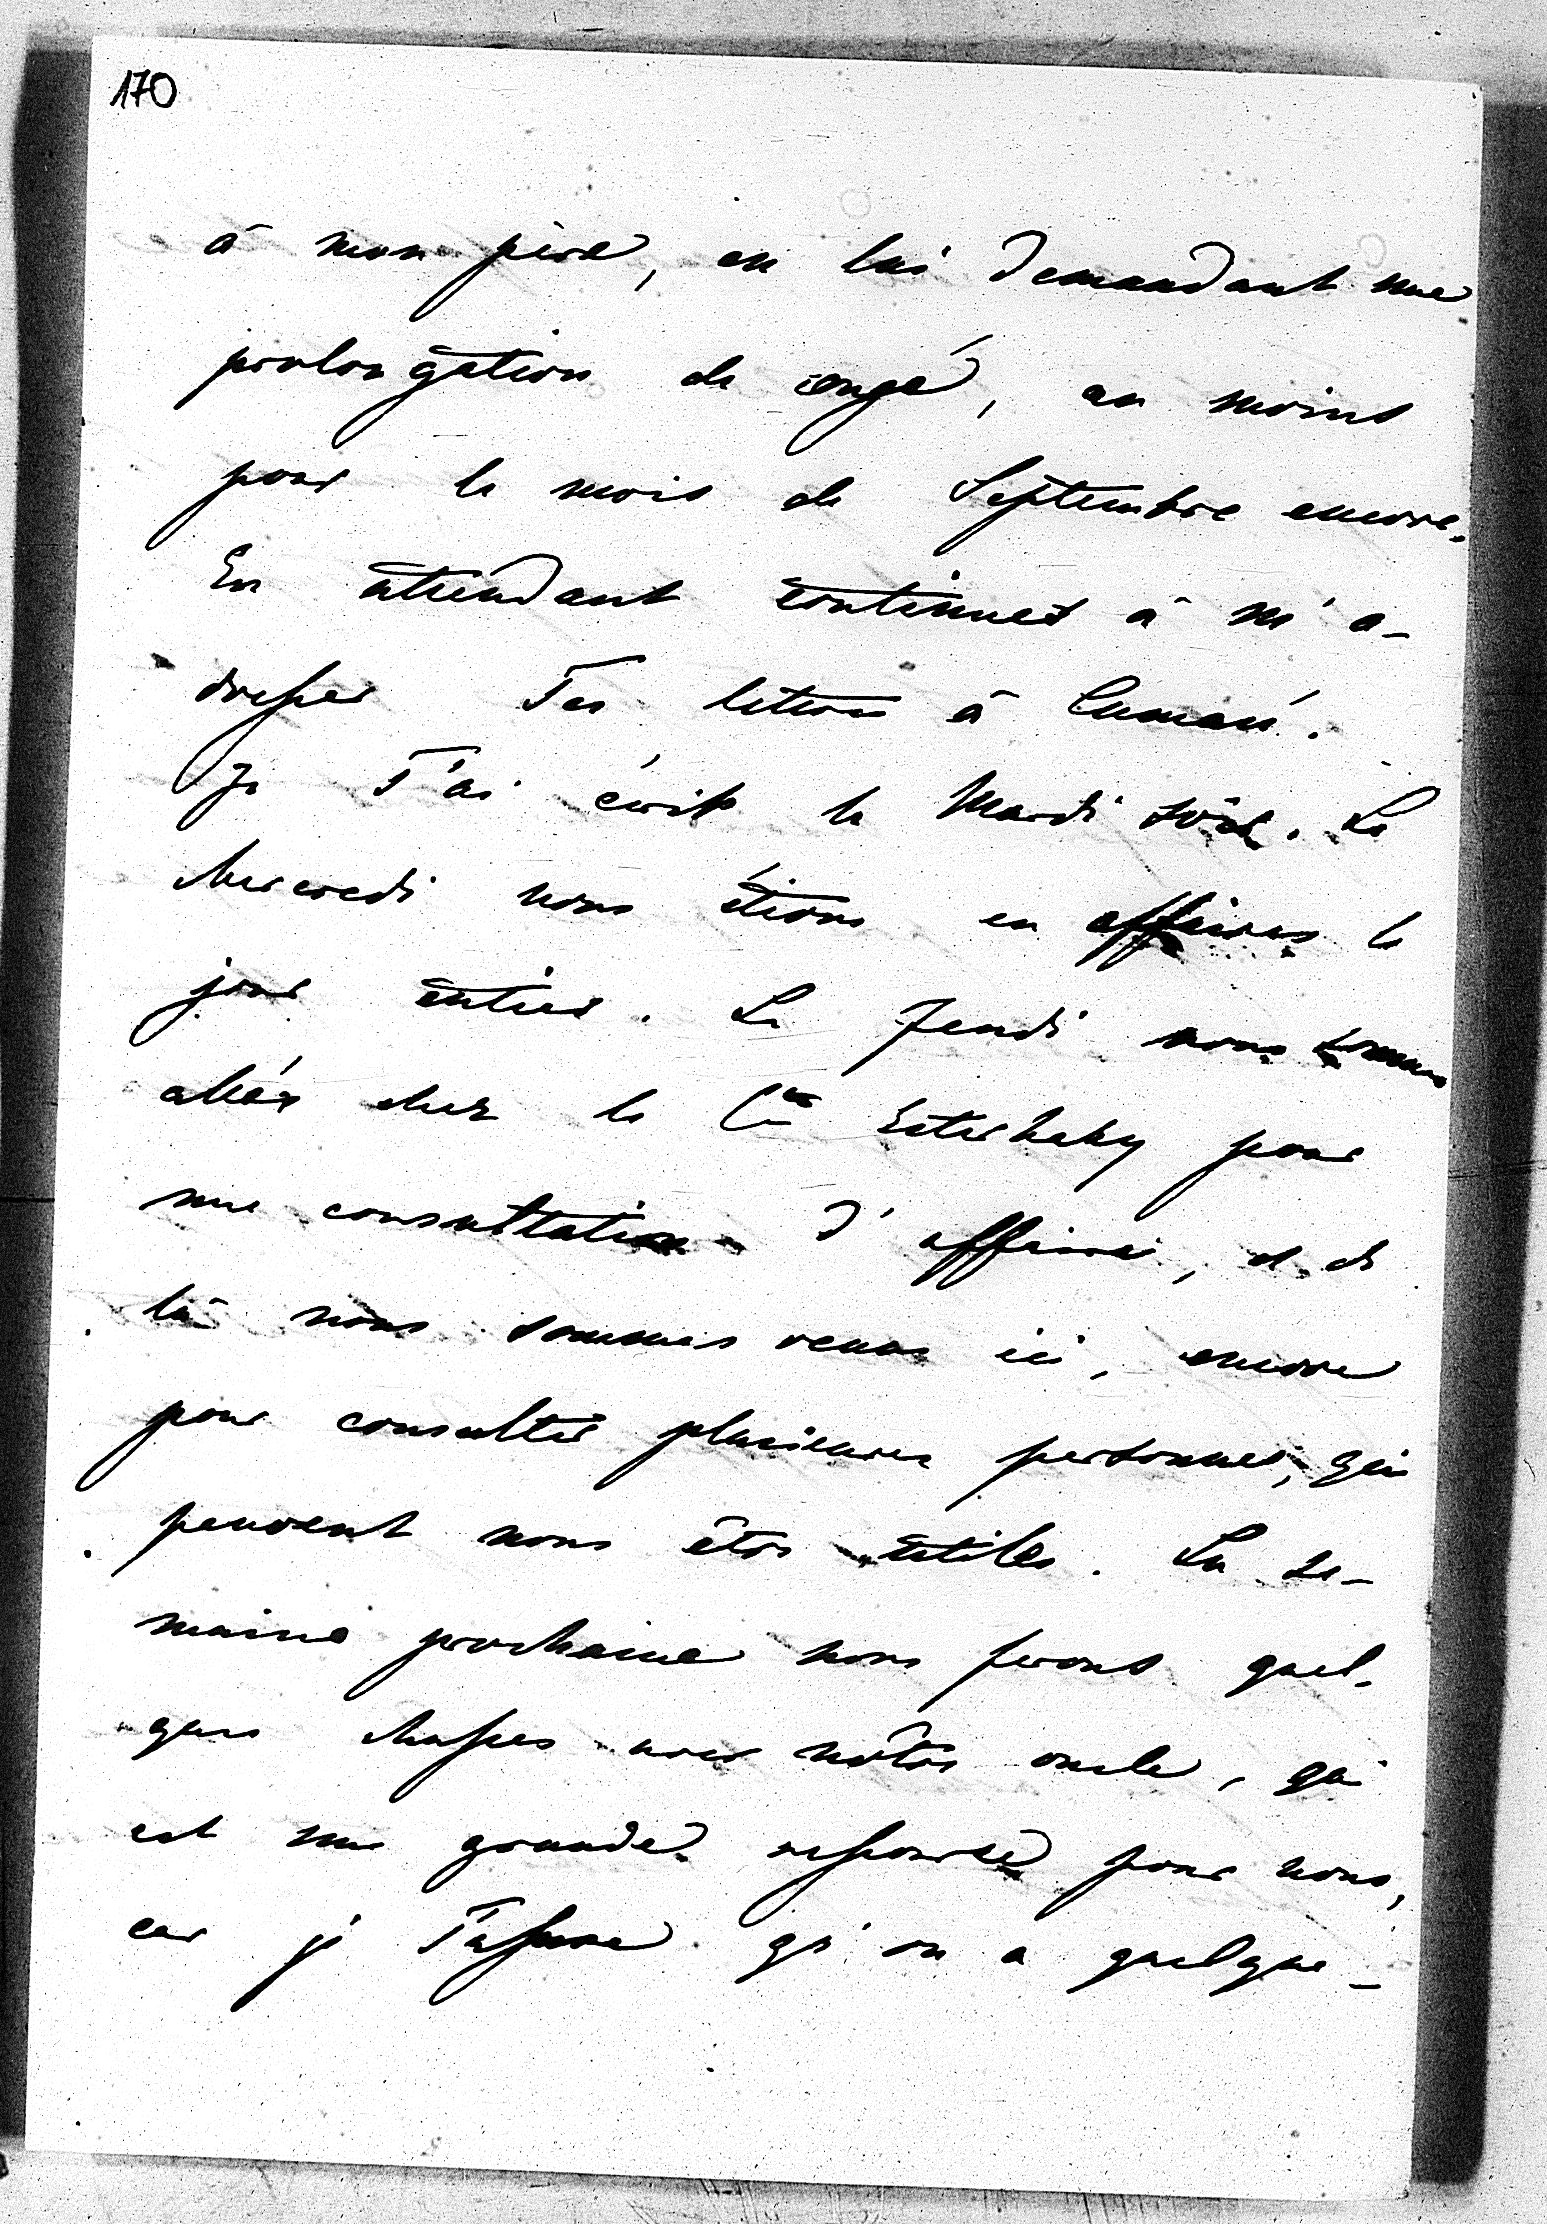 170
à mon père, en lui demandant une
prolongation de congé, au moins
pour le mois de Septembre encore.
En attendant continues à m'a-
dresser Tes lettres à Cumani.
Je T'ai écrit le Mardi soir. Le
Mercredi nous étions en affaires le
jour entier. Le Jeudi nous sommes
allés chez le Cte Esterhazy pour
une consultation d'affaires, et de
là nous sommes venus ici, encore
pour consulter plusieures personnes, qui
peuvent nous être utiles. La se-
maine prochaine nous ferons quel-
ques chasses avec nôtre oncle, qui
est une grande ressource pour nous,
car je T'assure qu'on a quelque-